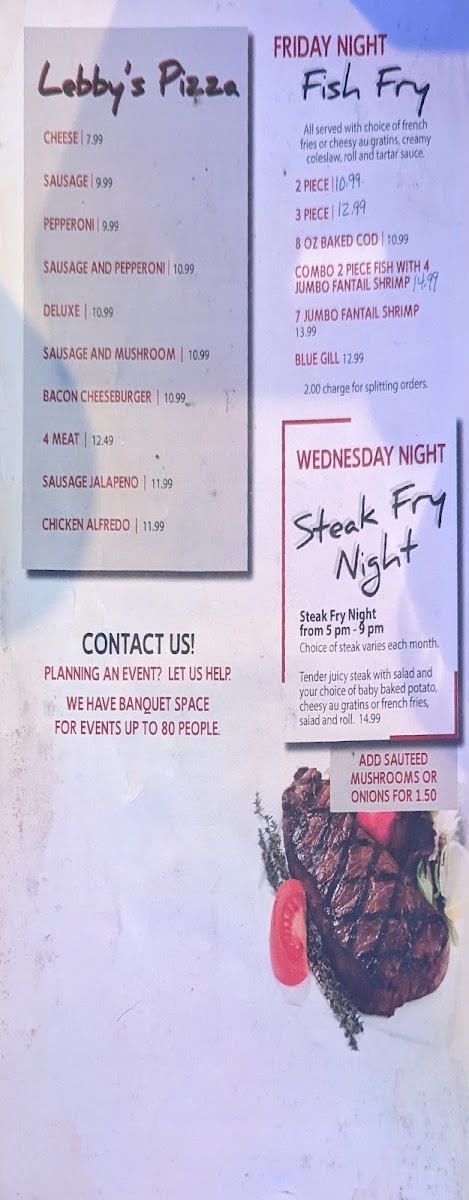 Lebby's Pizza
CHEESE | 7.99
SAUSAGE | 9.99
PEPPERONI | 9.99
SAUSAGE AND PEPPERONI | 10.99
DELUXE | 10.99
SAUSAGE AND MUSHROOM | 10.99
BACON CHEESEBURGER | 10.99
4 MEAT | 12.49
SAUSAGE JALAPENO | 11.99
CHICKEN ALFREDO | 11.99
CONTACT US!
PLANNING AN EVENT? LET US HELP.
WE HAVE BANQUET SPACE
FOR EVENTS UP TO 80 PEOPLE.
FRIDAY NIGHT
Fish Fry
All served with choice of french
fries or cheesy au gratins, creamy
coleslaw, roll and tartar sauce.
2 PIECE | 10.99
3 PIECE | 12.99
8 OZ BAKED COD | 10.99
COMBO 2 PIECE FISH WITH 4
JUMBO FANTAIL SHRIMP 14.99
7 JUMBO FANTAIL SHRIMP
13.99
BLUE GILL 12.99
2.00 charge for splitting orders.
WEDNESDAY NIGHT
Steak Fry
Night
Steak Fry Night
from 5 pm - 9 pm
Choice of steak varies each month.
Tender juicy steak with salad and
your choice of baby baked potato,
cheesy au gratins or french fries,
salad and roll. 14.99
ADD SAUTEED
MUSHROOMS OR
ONIONS FOR 1.50